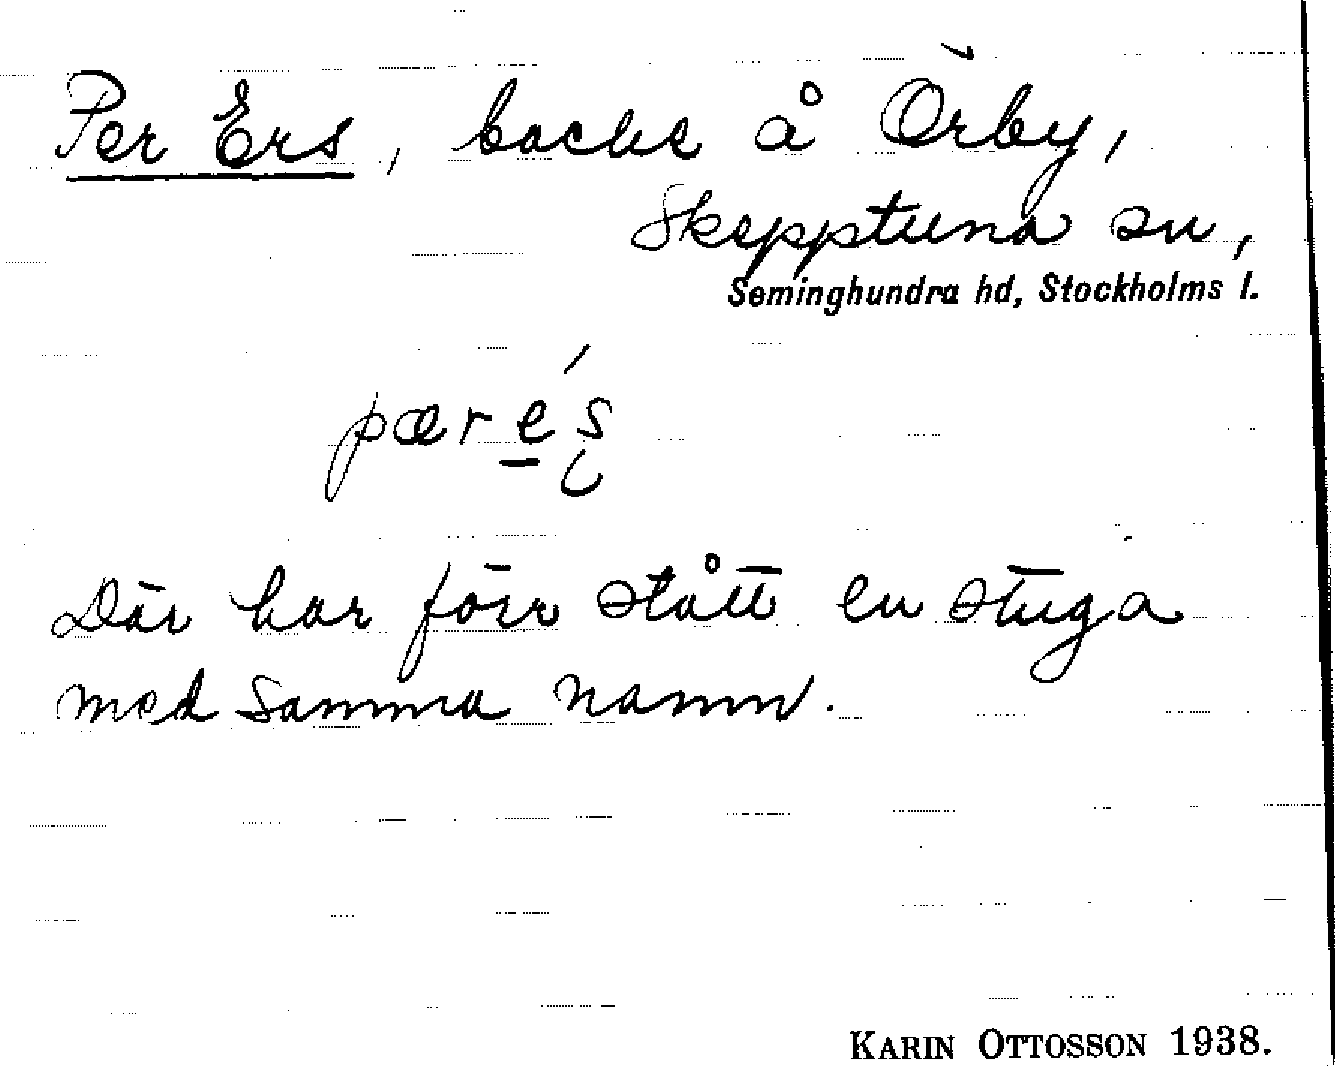 Per Ers, backe å Örby,
Skepptuna sn,
Seminghundra hd, Stockholms l.
pær é s
Där har förr stått en stuga
med samma namn.
KARIN OTTOSSON 1938.